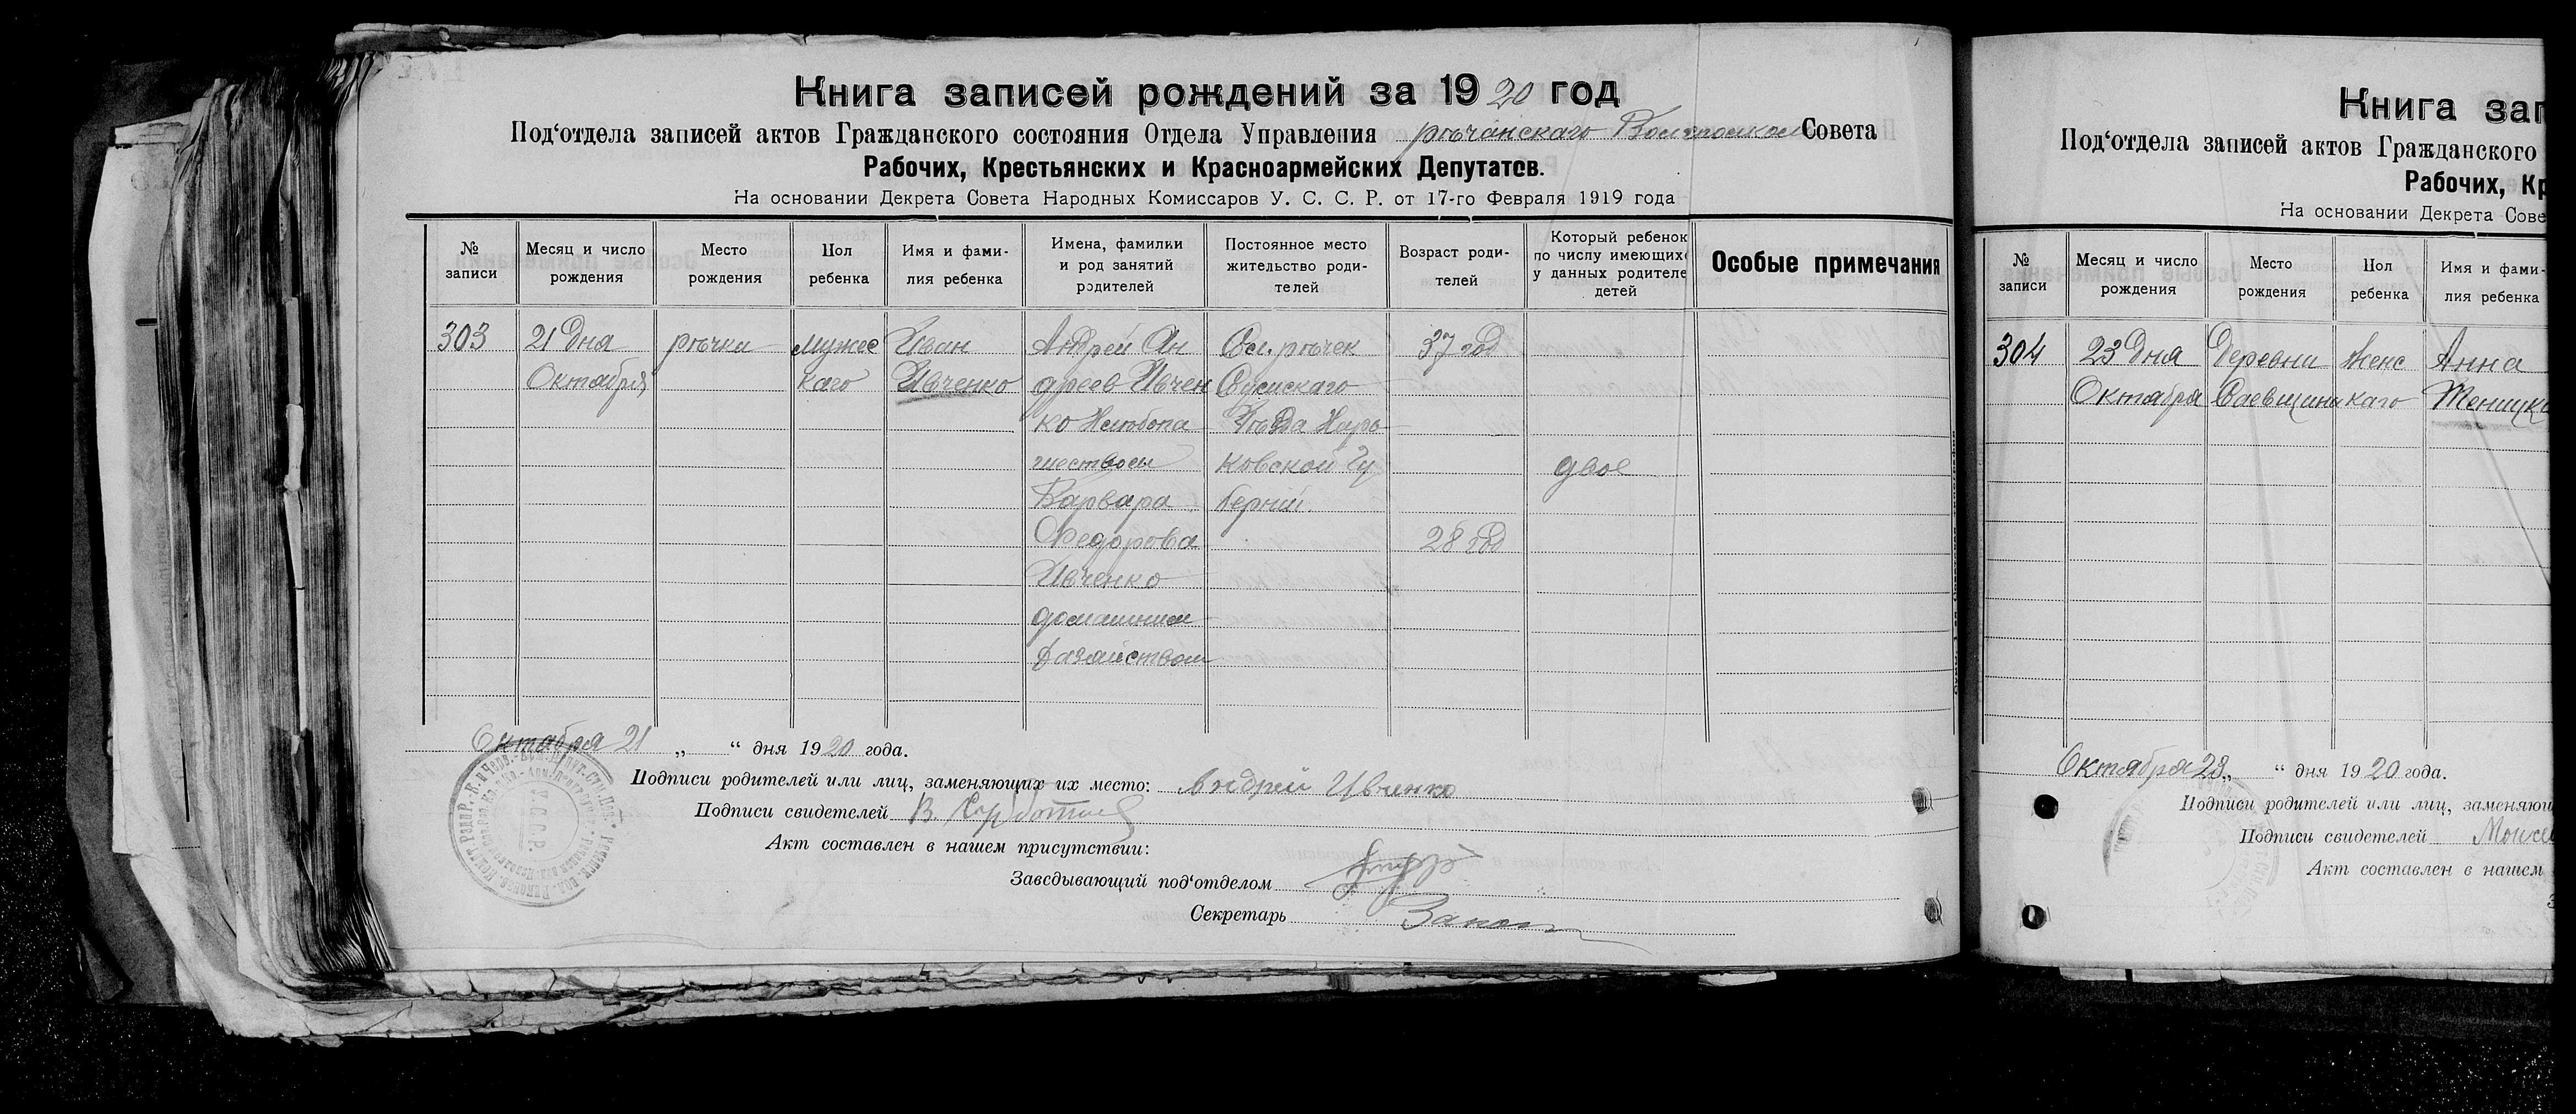 Книга записей рождений за 1920 год
Под‘отдела записей актов Гражданского состояния Отдела Управления рѣчанскаго Совета
Рабочих, Крестьянских и Красноармейских Депутатов.
На основании Декрета Совета Народных Комиссаров У. С. С. Р. от 17-го Февраля 1919 года
№ записи
Месяц и число рождения
Место рождения
Пол ребенка
Имя и фамилия ребенка
Имена, фамилии и род занятий родителей
Постоянное место жительство родителей
Возраст родителей
Который ребенок по числу имеющих у данных родителе детей
Особые примечания
303
21 дня
Октября
рѣчки
мужес
каго
Иван
Ивченко
Андрей Ан
дреев Ивчен
ко Хлѣбопа
шеством
Варвара
Федорова
Ивченко
домашним
хазайством
Сел. рѣчек
Сумскаго
Уѣзда Харь
ковской Гу
берніи.
37 год
28 год
двое
Октября 21 „ “ дня 1920 года.
Подписи родителей или лиц, заменяющих их место: Андрей Ивченко
Подписи свидетелей В.
Акт составлен в нашем присутствии:
Заведывающий под‘отделом
Секретарь
У.С.С.Р.
Книга зап
Под‘отдела записей актов Гражданского
Рабочих, Кр
На основании Декрета Сове
№ записи
Месяц и число рождения
Место рождения
Пол ребенка
Имя и фами-
лия ребенка
304
23 дня
Октября
Деревни
женс
каго
Анна
Октября 23 „ “ дня 1920 года.
Подписи родителей или лиц, заменяющ
Подписи свидетелей
Акт составлен в нашем